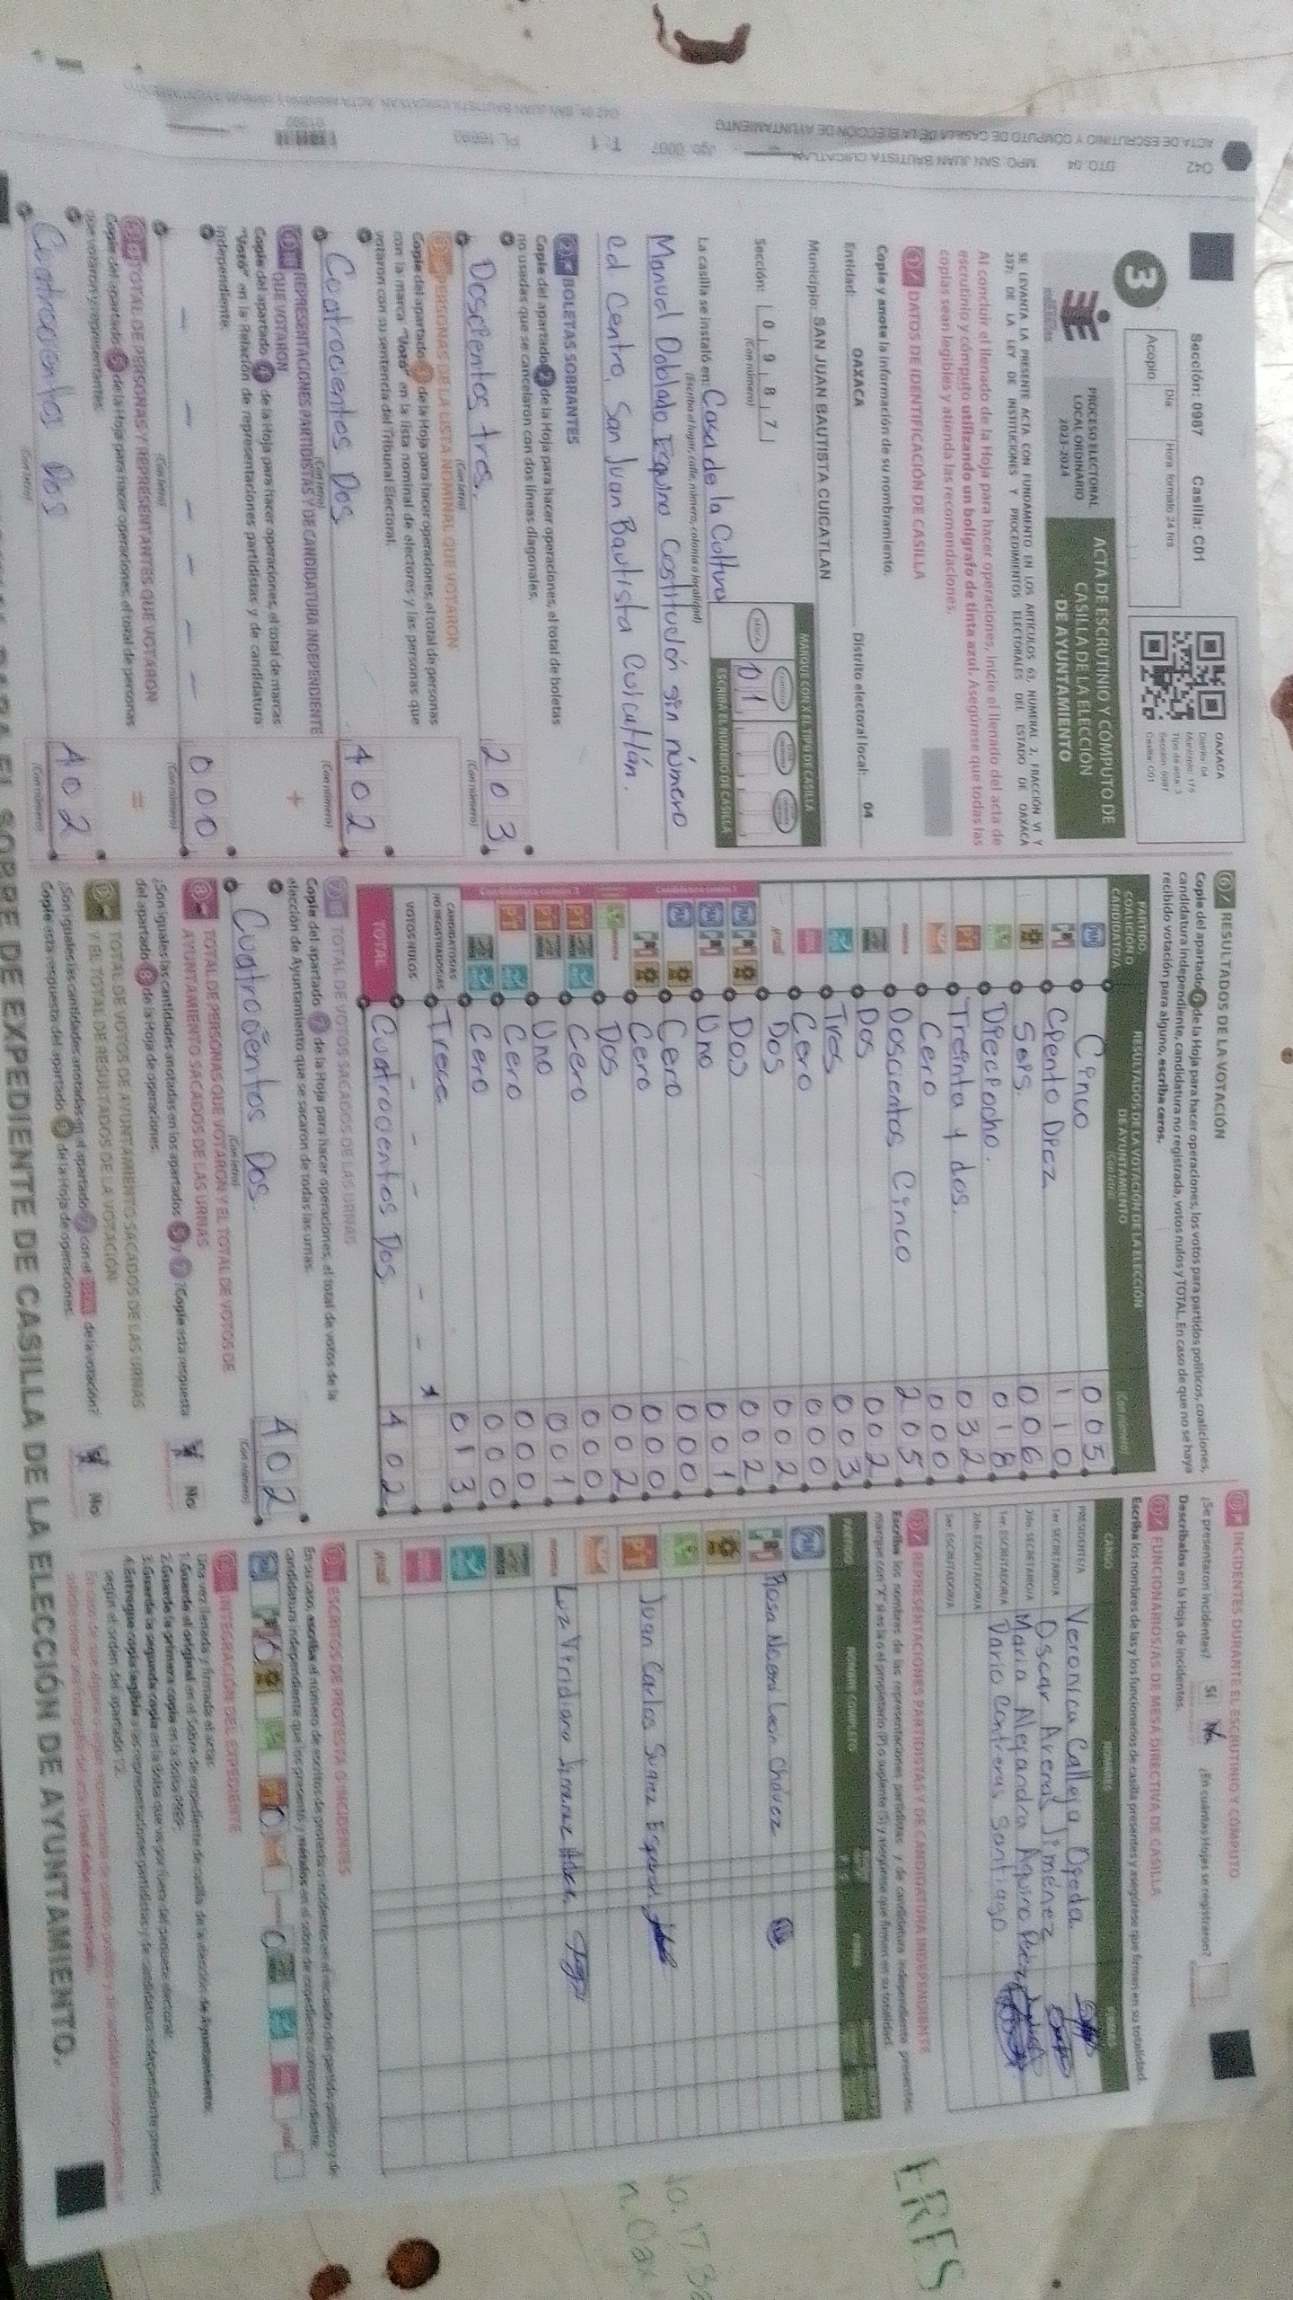 042 DTO. 04 MPO. SAN JUAN BAUTISTA CUICATLAN
ACTA DE ESCRUTINIO Y CÓMPUTO DE CASILLA DE LA ELECCIÓN DE AYUNTAMIENTO
Sección: 0987 Casilla: C01
OAXACA
3
Acopio
Día
Hora formato 24 hrs
PROCESO ELECTORAL
LOCAL ORDINARIO
2023-2024
ACTA DE ESCRUTINIO Y CÓMPUTO DE
CASILLA DE LA ELECCIÓN
DE AYUNTAMIENTO
SE LEVANTA LA PRESENTE ACTA CON FUNDAMENTO EN LOS ARTÍCULOS 63, NUMERAL 2, FRACCIÓN VI Y
237; DE LA LEY DE INSTITUCIONES Y PROCEDIMIENTOS ELECTORALES DEL ESTADO DE OAXACA
Al concluir el llenado de la Hoja para hacer operaciones, inicie el llenado del acta de
escrutinio y cómputo utilizando un bolígrafo de tinta azul. Asegúrese que todas las
copias sean legibles y atienda las recomendaciones.
1 DATOS DE IDENTIFICACIÓN DE CASILLA
Copie y anote la información de su nombramiento.
Entidad: OAXACA Distrito electoral local: 04
Municipio: SAN JUAN BAUTISTA CUICATLAN
Sección: 0987
(Con número)
MARQUE CON X EL TIPO DE CASILLA
01
ESCRIBA EL NÚMERO DE CASILLA
La casilla se instaló en: Casa de la Cultura
(Escriba el lugar, calle, número, colonia o localidad)
Manuel Doblado Esquina Constitución sin número
Cd Centro, San Juan Bautista Cuicatlán.
2 BOLETAS SOBRANTES
Copie del apartado 2 de la Hoja para hacer operaciones, el total de boletas
no usadas que se cancelaron con dos líneas diagonales.
Doscientos tres. 203
(Con letra) (Con número)
3 PERSONAS DE LA LISTA NOMINAL QUE VOTARON
Copie del apartado 3 de la Hoja para hacer operaciones, el total de personas
con la marca "Votó" en la lista nominal de electores y las personas que
votaron con su sentencia del Tribunal Electoral.
Coatrocientos Dos 402
(Con letra) (Con número)
4 REPRESENTACIONES PARTIDISTAS Y DE CANDIDATURA INDEPENDIENTE
QUE VOTARON
Copie del apartado 4 de la Hoja para hacer operaciones, el total de marcas
"Votó" en la Relación de representaciones partidistas y de candidatura
independiente.
- - - - - - - 000
(Con letra) (Con número)
5 TOTAL DE PERSONAS Y REPRESENTANTES QUE VOTARON
Copie del apartado 5 de la Hoja para hacer operaciones, el total de personas
que votaron y representantes.
Coatrocientos Dos 402
(Con letra) (Con número)
6 RESULTADOS DE LA VOTACIÓN
Copie del apartado 6 de la Hoja para hacer operaciones, los votos para partidos políticos, coaliciones,
candidatura independiente, candidatura no registrada, votos nulos y TOTAL. En caso de que no se haya
recibido votación para alguno, escriba ceros.
PARTIDO, COALICIÓN O CANDIDATO/A
RESULTADOS DE LA VOTACIÓN DE LA ELECCIÓN
DE AYUNTAMIENTO
(Con letra) (Con número)
Cinco 005
Ciento Diez 110
Seis. 006
Dieciocho. 018
Treinta y dos. 032
Cero 000
Doscientos Cinco 205
Dos 002
Tres 003
Cero 000
Dos 002
Dos 002
Uno 001
Cero 000
Cero 000
Dos 002
Cero 000
Uno 001
Cero 000
Cero 000
CANDIDATOS/AS NO REGISTRADOS/AS
Trece 013
VOTOS NULOS - - - - - -
TOTAL Cuatrocientos Dos 402
7 TOTAL DE VOTOS SACADOS DE LAS URNAS
Copie del apartado 7 de la Hoja para hacer operaciones, el total de votos de la
elección de Ayuntamiento que se sacaron de todas las urnas.
Cuatrocientos Dos 402
(Con letra) (Con número)
8 TOTAL DE PERSONAS QUE VOTARON Y EL TOTAL DE VOTOS DE
AYUNTAMIENTO SACADOS DE LAS URNAS
¿Son iguales las cantidades anotadas en los apartados 5 y 7? Copie esta respuesta
del apartado 8 de la Hoja de operaciones.
No
9 TOTAL DE VOTOS DE AYUNTAMIENTO SACADOS DE LAS URNAS
Y EL TOTAL DE RESULTADOS DE LA VOTACIÓN
¿Son iguales las cantidades anotadas en el apartado 7 con el TOTAL de la votación?
Copie esta respuesta del apartado 9 de la Hoja de operaciones.
No
INCIDENTES DURANTE EL ESCRUTINIO Y CÓMPUTO
¿Se presentaron incidentes? Sí No ¿En cuántas Hojas se registraron?
Descríbalos en la Hoja de Incidentes.
FUNCIONARIOS/AS DE MESA DIRECTIVA DE CASILLA
Escriba los nombres de las y los funcionarios de casilla presentes y asegúrese que firmen en su totalidad.
CARGO NOMBRES FIRMAS
PRESIDENTE/A Veronica Calleja Ojeda
1er. SECRETARIO/A Oscar Arenas Jiménez
2do. SECRETARIO/A Maria Alejandra Aquino
1er. ESCRUTADOR/A Dario Contreras Santiago
2do. ESCRUTADOR/A
3er. ESCRUTADOR/A
REPRESENTACIONES PARTIDISTAS Y DE CANDIDATURA INDEPENDIENTE
Escriba los nombres de las representaciones partidistas y de candidatura independiente presentes,
marque con "X" si es la o el propietario (P) o suplente (S) y asegúrese que firmen en su totalidad.
PARTIDO NOMBRE COMPLETO FIRMA
Rosa Noemi Leon Chávez
Juan Carlos Suarez
Luz Viridiana Jimenez
ESCRITOS DE PROTESTA O INCIDENTES
En su caso, escriba el número de escritos de protesta o incidentes en el recuadro del partido político y de
candidatura independiente que los presentó y métalos en el sobre de expediente correspondiente.
INTEGRACIÓN DEL EXPEDIENTE
Una vez llenada y firmada el acta:
1. Guarde el original en el Sobre de expediente de casilla de la elección de Ayuntamiento.
2. Guarde la primera copia en la Bolsa PREP.
3. Guarde la segunda copia en la Bolsa que va por fuera del paquete electoral.
4. Entregue copia legible a las representaciones partidistas y de candidatura independiente presentes,
según el orden del apartado 12.
SOBRE DE EXPEDIENTE DE CASILLA DE LA ELECCIÓN DE AYUNTAMIENTO.
ERES